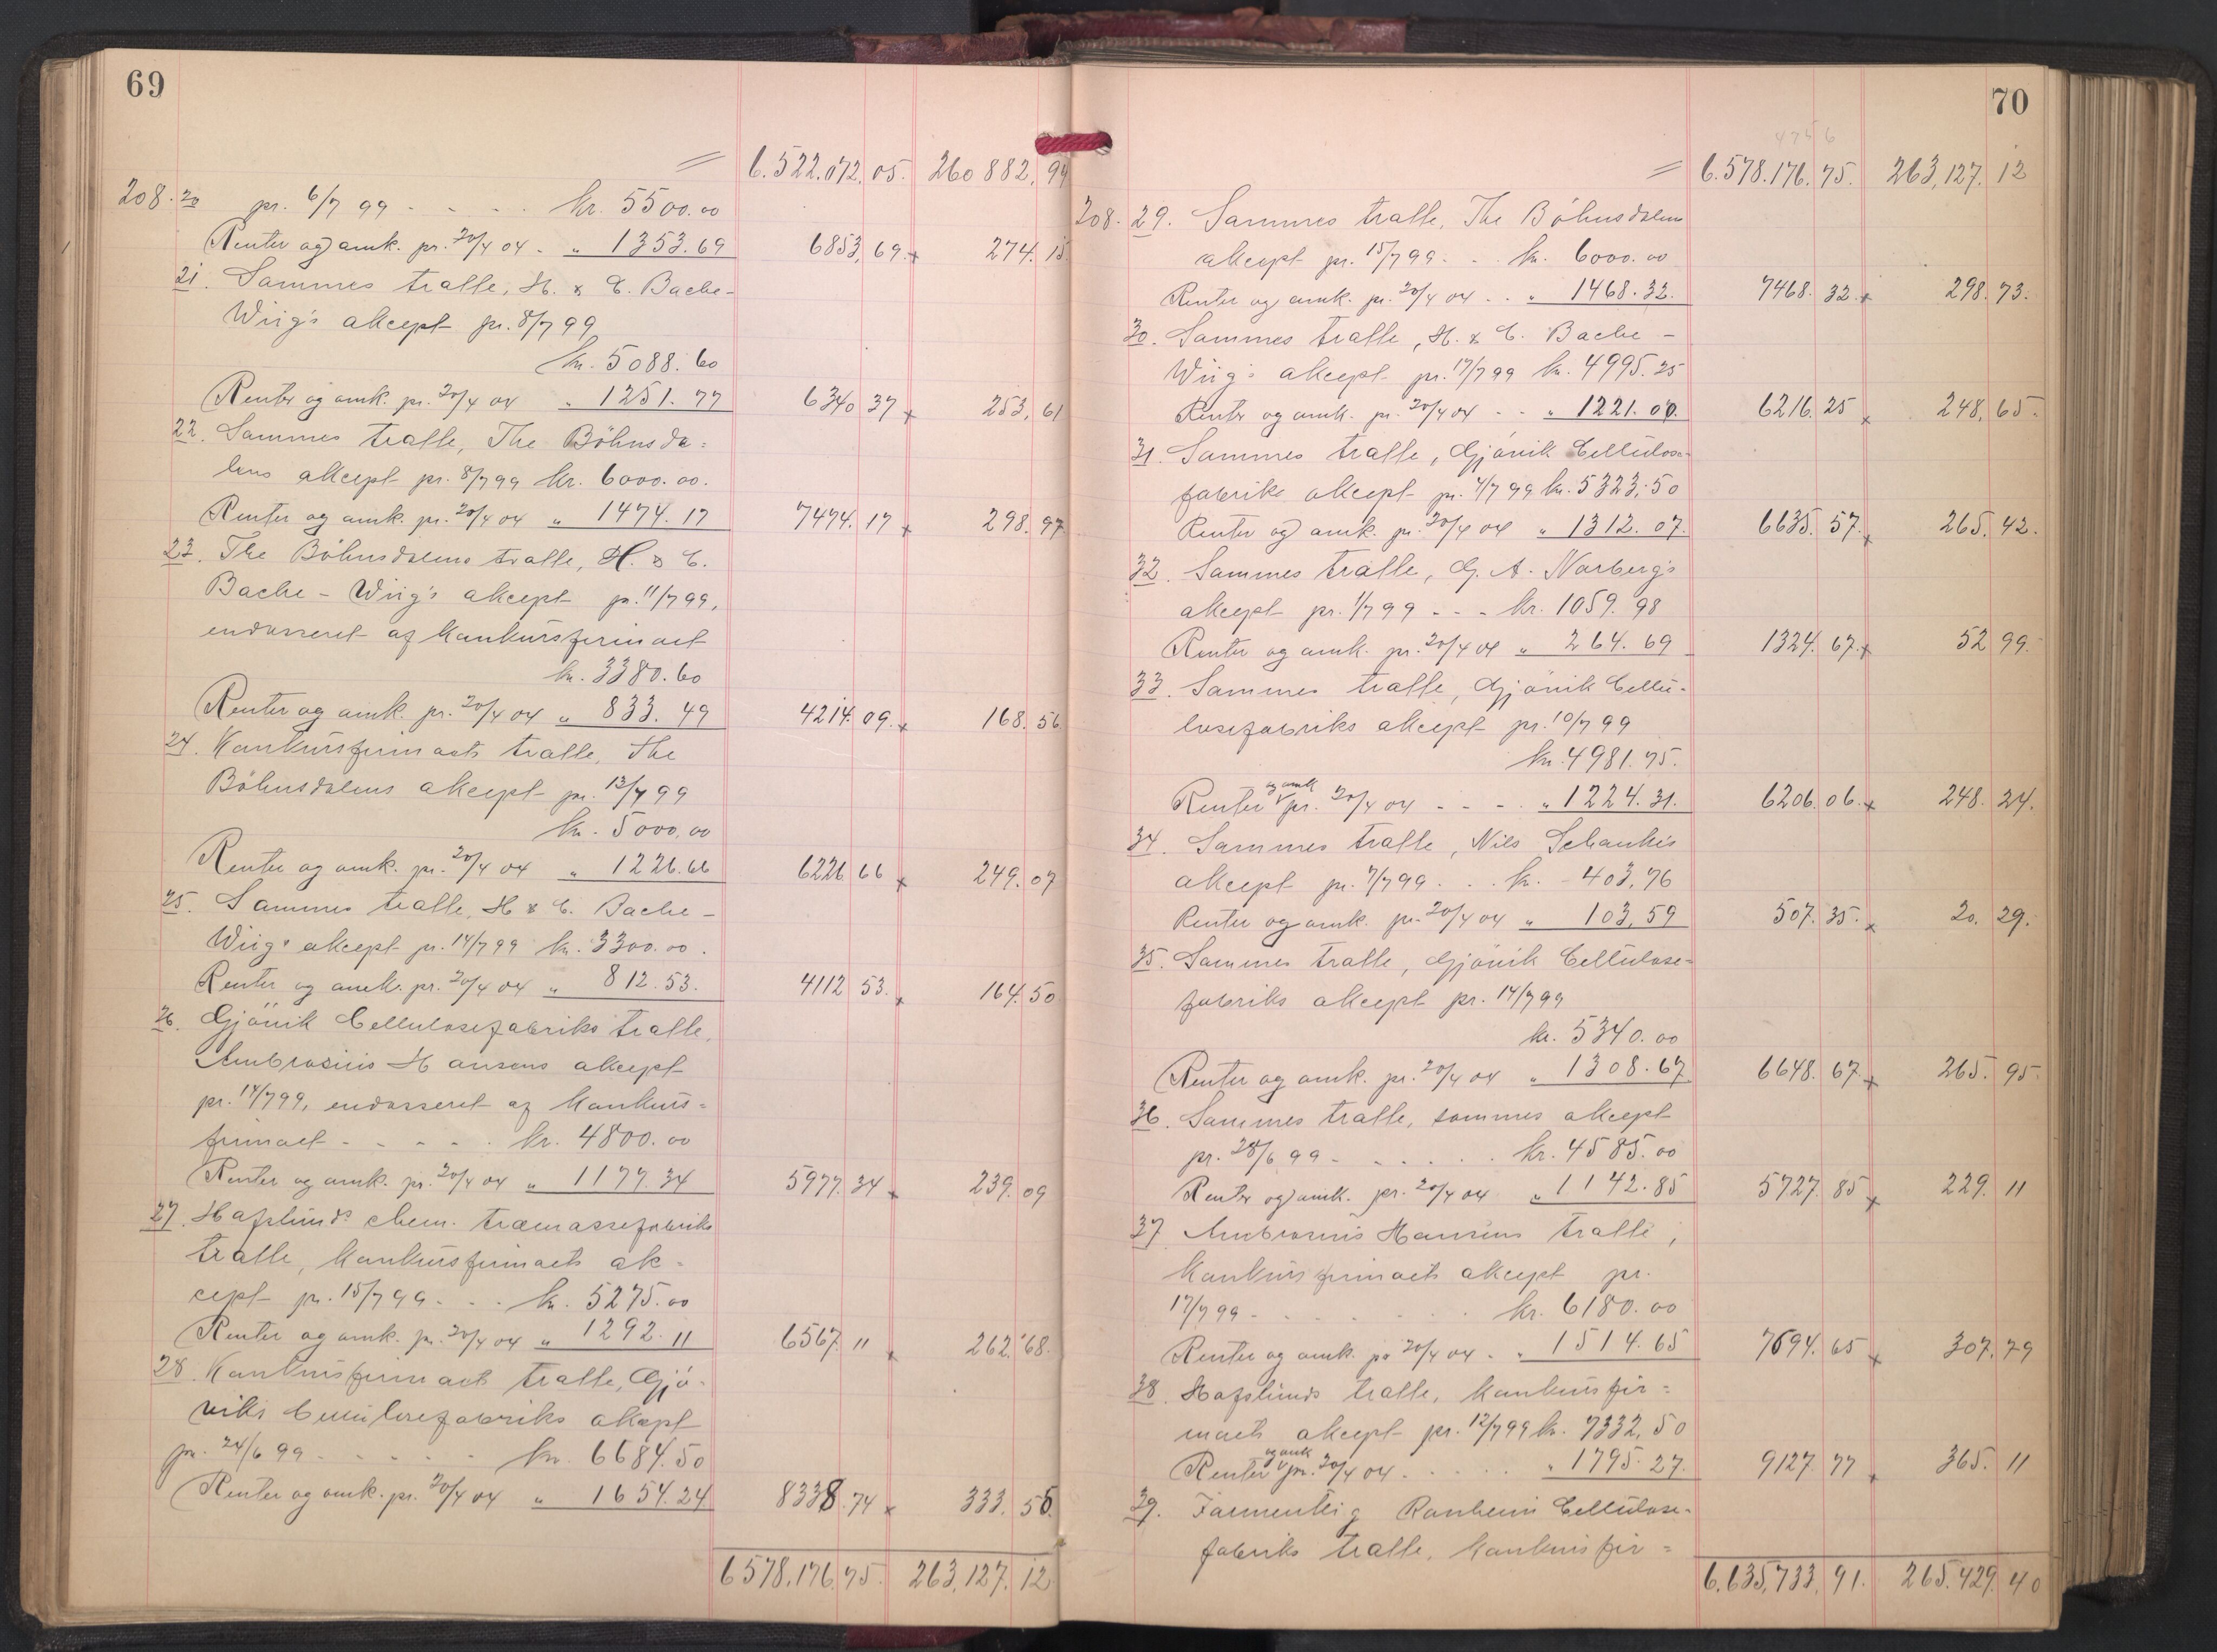 69
= 6.522.072,05. 260 882,94
208. 20 pr. 6/7 99 - - - - kr. 5500.00
Renter og amk. pr. 20/4 04 - „ 1353.69 6853,69.x 274.15.
21. Sammes tratte, H. & C. Bache-
Wiig's akcept pr. 8/7 99
kr. 5088.60
Renter og amk. pr. 20/4 04 „ 1251.77 6340 37 x 253,61
22. Sammes tratte, The Böhnsda=
lens akcept pr. 8/7 99 kr. 6000.00.
Renter og amk. pr. 20/4 04 „ 1474.17 7474.17 x 298.97
23. The Böhnsdalens tratte, H. & C.
Bache - Wiig's akcept pr. 11/7 99,
endosseret af konkursfirmaet
kr. 3380.60
Renter og amk. pr. 20/4 04 „ 833.49 4214.09.x 168.56
24. Konkursfirmaets tratte, The
Böhnsdalens akcept pr. 13/7 99
kr. 5000.00
Renter og amk. pr. 20/4 04 „ 1226.66 6226 66 x 249.07
25. Sammes tratte, H & C. Bache -
Wiig's akcept pr. 14/7 99 kr. 3300.00.
Renter og amk. pr. 20/4 04 „ 812.53. 4112 53. x 164.50
26. Gjövik Cellulosefabriks tratte,
Ambrosius Hansens akcept
pr. 14/7 99, endosseret af konkurs=
firmaet - - - - . kr. 4800.00
Renter og amk. pr. 20/4 04 „ 1177.34 5977.34 x 239.09
27. Hafslunds chem. træmassefabriks
tratte, konkursfirmaets ak-
cept pr. 15/7 99 - . . kr. 5275.00
Renter og amk. pr. 20/4 04 „ 1292.11 6567.11 x 262.68.
28. Konkursfirmaets tratte, Gjö-
viks Cellulosefabriks akcept
pr. 24/6 99 - - - - - kr. 6684.50
Renter og amk. pr. 20/4 04 „ 1654.24 8338.74 x 333.55.
6578.176,75. 263,127.12
70
4756
= 6.578.176.75. 263,127.12
208. 29. Sammes tratte, The Böhnsdalens
akcept pr. 15/7 99 - . . kr. 6000.00
Renter og amk. pr. 20/4 04 . . „ 1468.32. 7468.32.x 298.73.
30. Sammes tratte, H. & C. Bache -
Wiig's akcept pr. 17/7 99 kr. 4995.25
Renter og amk. pr. 20/4 04 - - „ 1221.00. 6216.25 x 248.65.
31. Sammes tratte, Gjövik Cellulose-
fabriks akcept pr. 4/7 99 kr. 5323,50
Renter og amk. pr. 20/4 04 „ 1312.07. 6635.57.x 265.42.
32. Sammes tratte, G. A. Norberg's
akcept pr. 1/7 99 - - - kr. 1059.98
Renter og amk. pr. 20/4 04 „ 264.69 1324.67.x 52 99.
33. Sammes tratte, Gjövik Cellu-
losefabriks akcept pr. 10/7 99
kr. 4981.75.
Renter og amk pr. 20/4 04 - - - . „ 1224.31. 6206.06.x 248.24.
34. Sammes tratte, Nils Schankes
akcept pr. 7/7 99 . . . kr. - 403,76
Renter og amk. pr. 20/4 04 „ 103,59 507.35.x 20.29.
35. Sammes tratte, Gjövik Cellulose-
fabriks akcept pr. 14/7 99
kr. 5340.00
Renter og amk. pr. 20/4 04 „ 1308.67 6648.67.x 265.95.
36. Sammes tratte, sammes akcept
pr. 28/6 99 - - - . . . kr. 4585.00
Renter og amk. pr. 20/4 04 „ 1142.85 5727.85 x 229.11
37 Ambrosius Hansens tratte,
konkursfirmaets akcept pr.
17/7 99 - . . . . . . kr. 6180.00
Renter og amk. pr 20/4 04 - „ 1514.65 7694.65 x 307.79
38. Hafslunds tratte, konkursfir=
maets akcept pr. 12/7 99 kr. 7332,50
Renter og amk pr. 20/4 04 . . . . . „ 1795.27. 9127.77 x 365.11
39. Ranheim Cellulose-
fabriks tratte, konkursfir=
6.635,733,91. 265.429.40